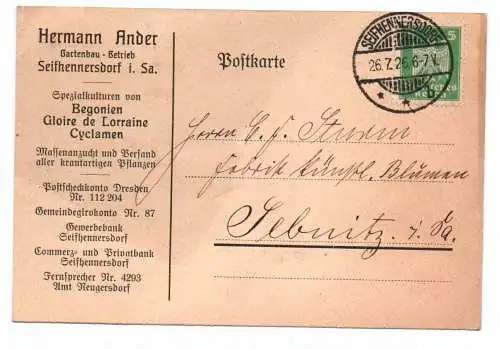 Hermann Ander
Gartenbau-Betrieb
Seifhennersdorf i. Sa.
Spezialkulturen von
Begonien
Gloire de Lorraine
Cyclamen
Massenanzucht und Versand
aller krautartigen Pflanzen
Postscheckkonto Dresden
Nr. 112 204
Gemeindegirokonto Nr. 87
Gewerbebank
Seifhennersdorf
Commerz- und Privatbank
Seifhennersdorf
Fernsprecher Nr. 4293
Amt Neugersdorf
Postkarte
SEIFHENNERSDORF
26.7.26.6-7V.
5
Herrn C. F. Sturm
Fabrik künstl. Blumen
Sebnitz i. Sa.